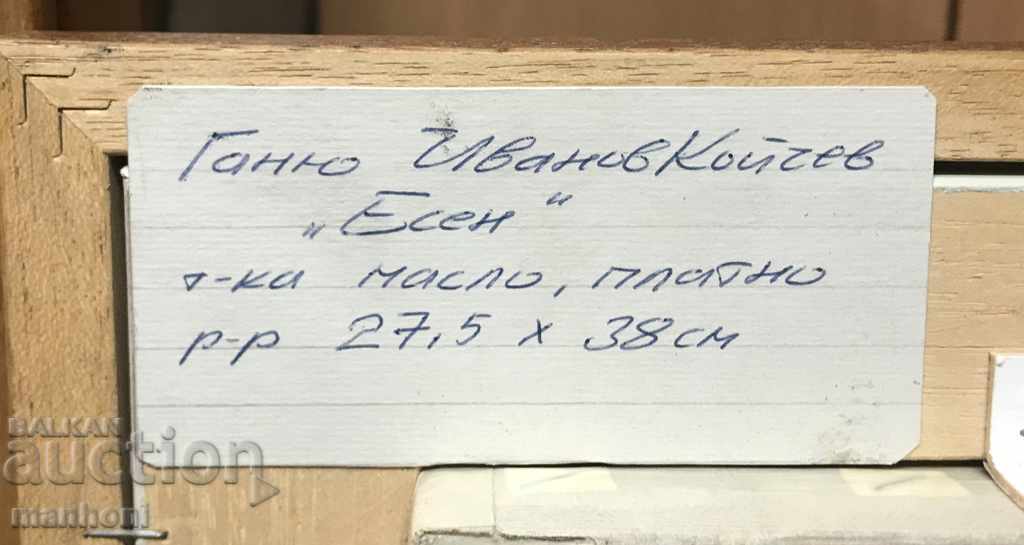 Ганю Иванов Койчев
„Есен“
т-ка масло, платно
р-р 27,5 х 38см
BALKAN
auction
manhoni